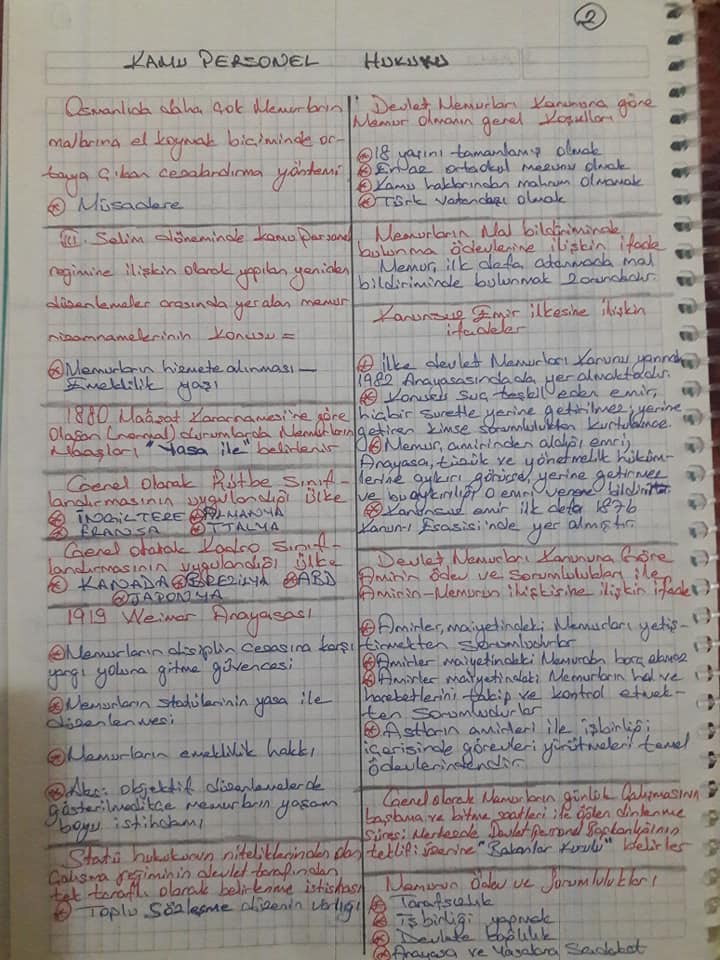 2
KAMU PERSONEL HUKUKU
Osmanlıda daha çok Memurların
mallarına el koymak biçiminde or-
taya çıkan cezalandırma yöntemi
Müsadere
III. Selim döneminde kamu personel
regimine ilişkin olarak yapılan yeniden
düzenlemeler arasında yer alan memur
nizamnamelerinin konusu =
Memurların hizmete alınması —
Emeklilik yaşı
1880 Maaşat Kararnamesi'ne göre
Olağan (normal) durumlarda Memurların
Maaşları "Yasa ile" belirlenir
Genel Olarak Rütbe Sınıf-
landırmasının uygulandığı ülke
İNGİLTERE ALMANYA
FRANSA İTALYA
Genel olarak Kadro Sınıf-
landırmasının uygulandığı ülke
KANADA BREZİLYA ABD
JAPONYA
1919 Weimar Anayasası
Memurların disiplin cezasına karşı
yargı yoluna gitme güvencesi
Memurların statülerinin yasa ile
düzenlenmesi
Memurların emeklilik hakkı
Aksi objektif düzenlemelerde
gösterilmedikçe memurların yaşam
boyu istihdamı
Statü hukukunun niteliklerinden olan
çalışma rejiminin devlet tarafından
tek taraflı olarak belirlenme istisnası
Toplu Sözleşme düzenin varlığı
Devlet Memurları Kanununa göre
Memur olmanın genel Koşulları
18 yaşını tamamlamış olmak
En az ortaokul mezunu olmak
Kamu haklarından mahrum olmamak
Türk Vatandaşı olmak
Memurların Mal bildiriminde
bulunma ödevlerine ilişkin ifade
Memur, ilk defa atanmada mal
bildiriminde bulunmak zorundadır.
Kanunsuz Emir ilkesine ilişkin
ifadeler
İlke devlet Memurları Kanunu yanında
1982 Anayasasında da yer almaktadır.
Konusu suç teşkil eden emir,
hiçbir suretle yerine getirilmez; yerine
getiren kimse sorumluluktan kurtulamaz.
Memur, amirinden aldığı emri,
Anayasa, tüzük ve yönetmelik hüküm-
lerine aykırı görürse, yerine getirmez
ve bu aykırılığı o emri verene bildirir.
Kanunsuz emir ilk defa 1876
Kanun-ı Esasisi'nde yer almıştır.
Devlet Memurları Kanununa Göre
Amirin Ödev ve Sorumlulukları ile
Amirin-Memurun ilişkisine ilişkin ifade
Amirler, maiyetindeki Memurları yetiş-
tirmekten sorumludurlar
Amirler maiyetindeki Memurdan borç alamaz
Amirler maiyetindeki Memurların hal ve
hareketlerini takip ve kontrol etmek-
ten Sorumludurlar
Astların amirleri ile işbirliği
içerisinde görevleri yürütmeleri temel
ödevlerindendir.
Genel olarak Memurların günlük Çalışmasının
başlama ve bitme saatleri ile öğlen dinlenme
Süresi Merkezde Devlet Personel Başkanlığının
teklifi üzerine "Bakanlar Kurulu" belirler
Memurun Ödev ve Sorumlulukları
Tarafsızlık
İşbirliği yapmak
Devlete bağlılık
Anayasa ve Yasalara Sadakat